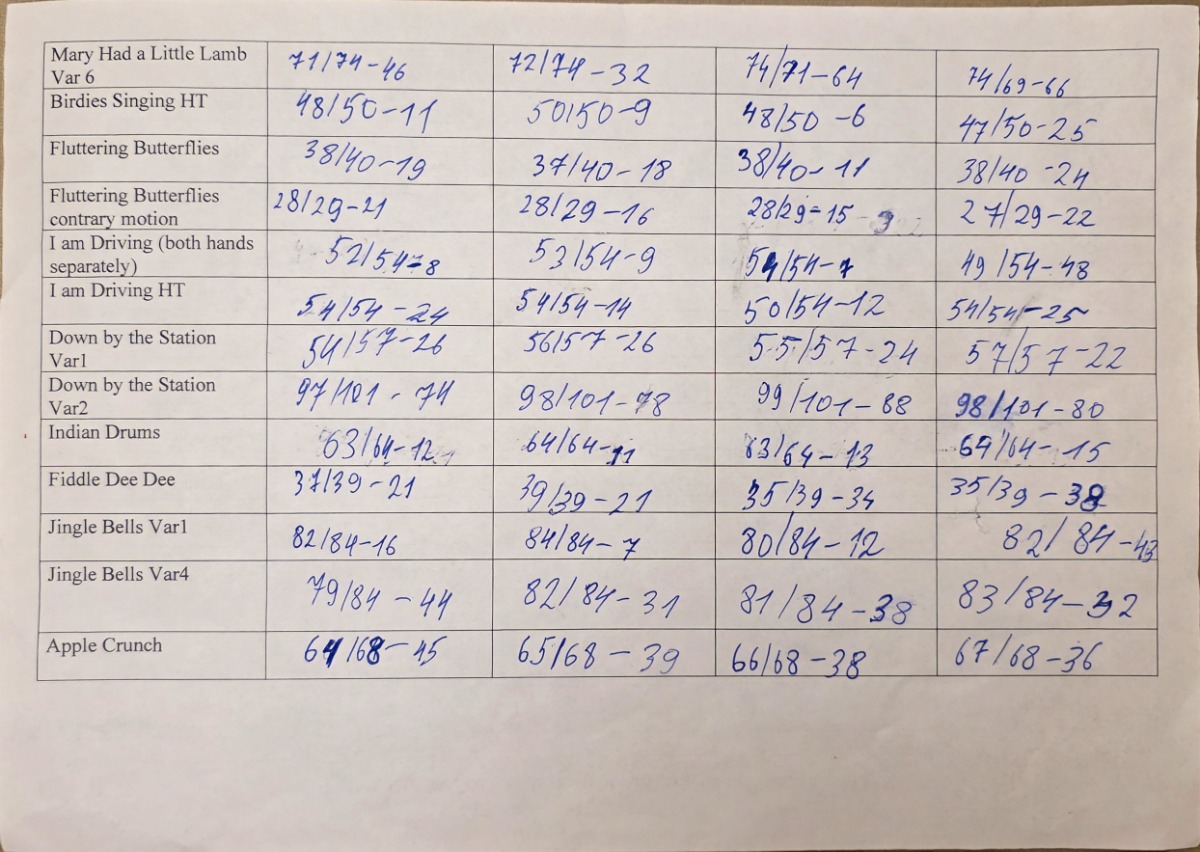 Mary Had a Little Lamb
Var 6
71/74-46 72/74-32 74/71-64 74/69-66
Birdies Singing HT
48/50-11 50/50-9 48/50-6 47/50-25
Fluttering Butterflies
38/40-19 37/40-18 38/40-11 38/40-24
Fluttering Butterflies
contrary motion
28/29-21 28/29-16 28/29-15 27/29-22
I am Driving (both hands
separately)
52/54-8 53/54-9 54/54-7 49/54-48
I am Driving HT
54/54-24 54/54-14 50/54-12 54/54-25
Down by the Station
Var1
54/57-26 56/57-26 55/57-24 57/57-22
Down by the Station
Var2
97/101-74 98/101-78 99/101-88 98/101-80
Indian Drums
63/64-12 64/64-11 63/64-13 64/64-15
Fiddle Dee Dee
37/39-21 39/39-21 35/39-34 35/39-38
Jingle Bells Var1
82/84-16 84/84-7 80/84-12 82/84-43
Jingle Bells Var4
79/84-44 82/84-31 81/84-38 83/84-32
Apple Crunch
64/68-45 65/68-39 66/68-38 67/68-36